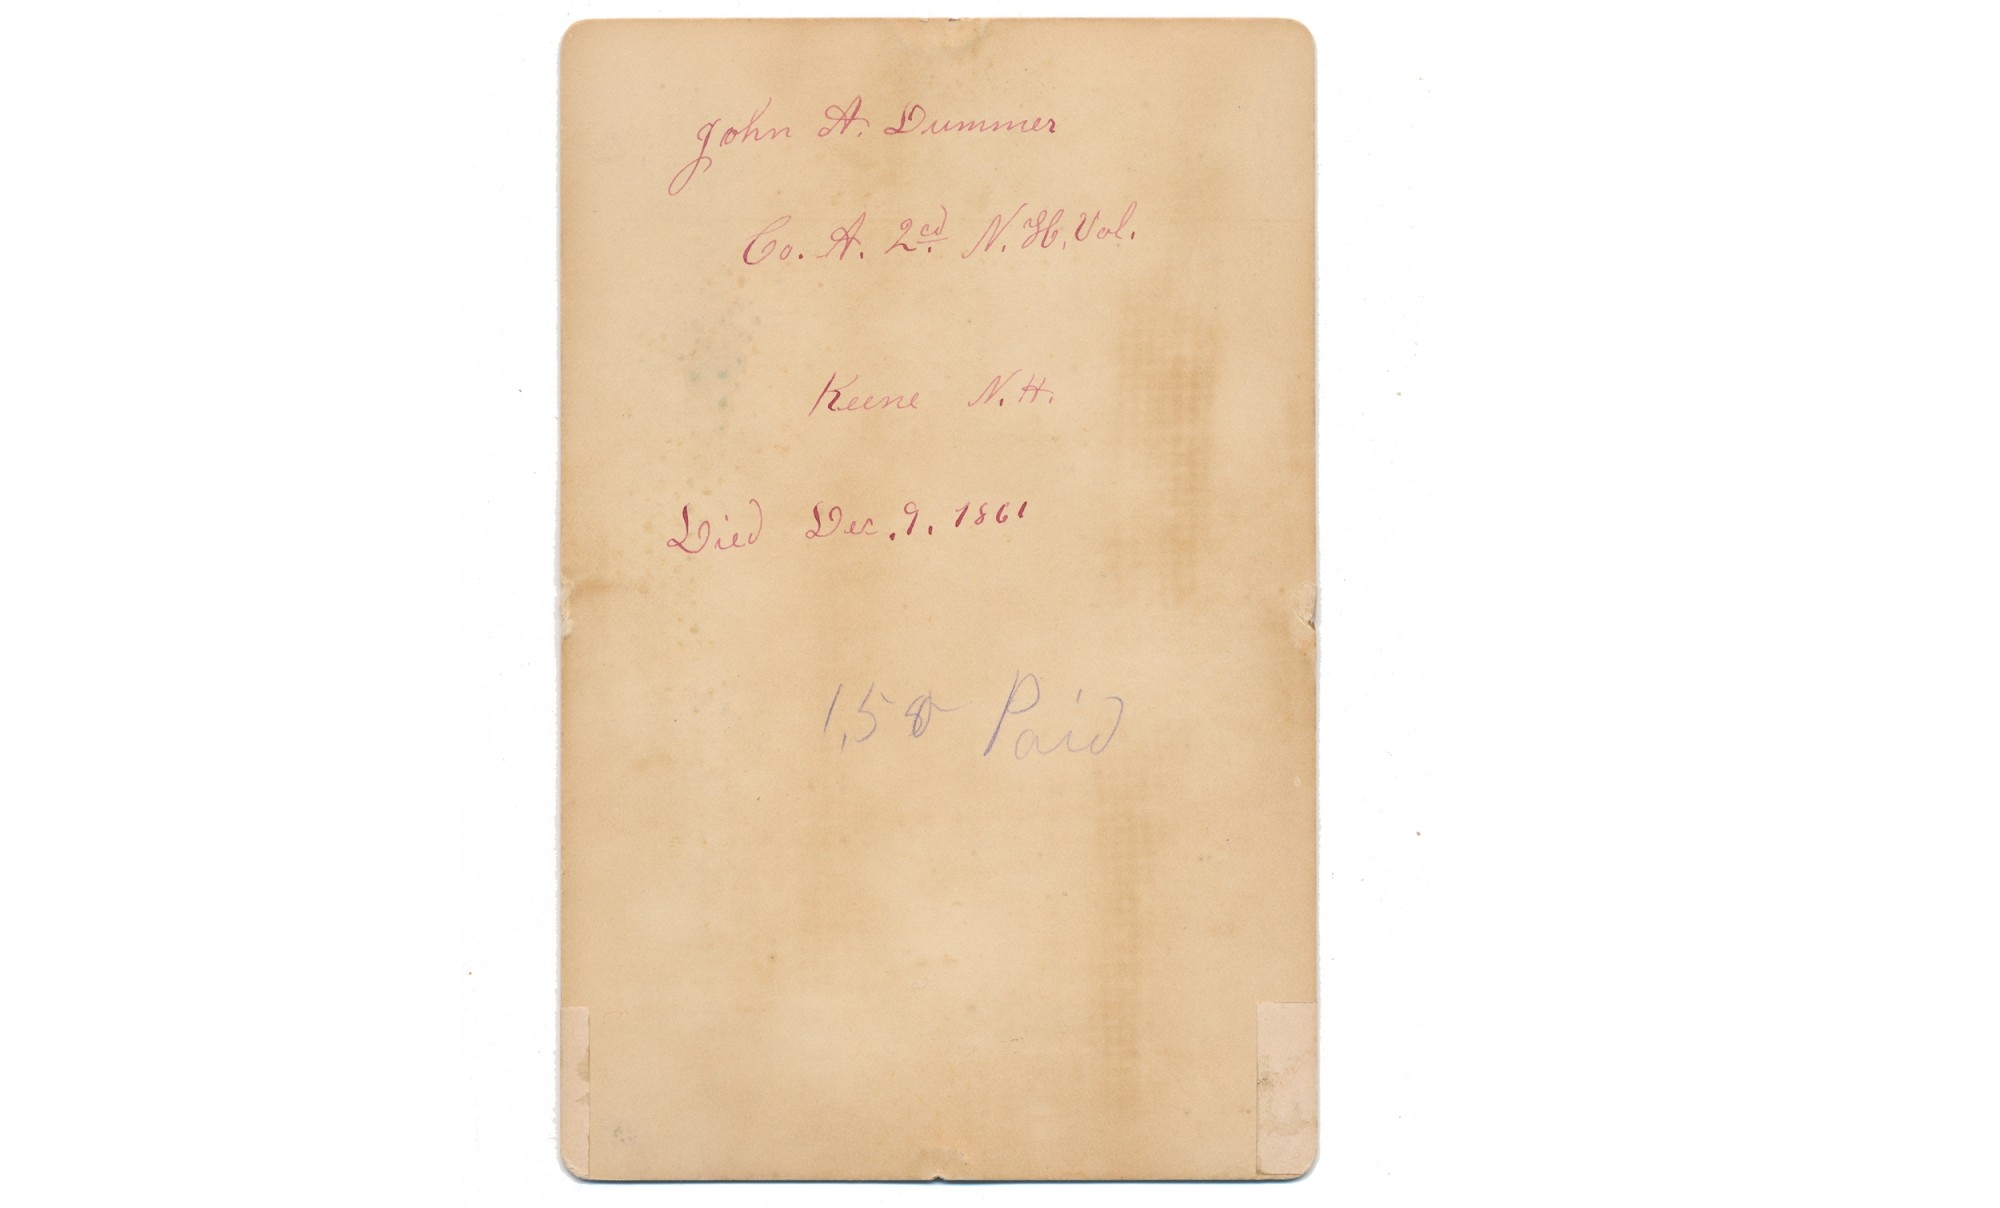 John A. Dummer
Co. A. 2cd. N.H. Vol.
Keene N.H.
Died Dec. 9. 1861
1,50 Paid